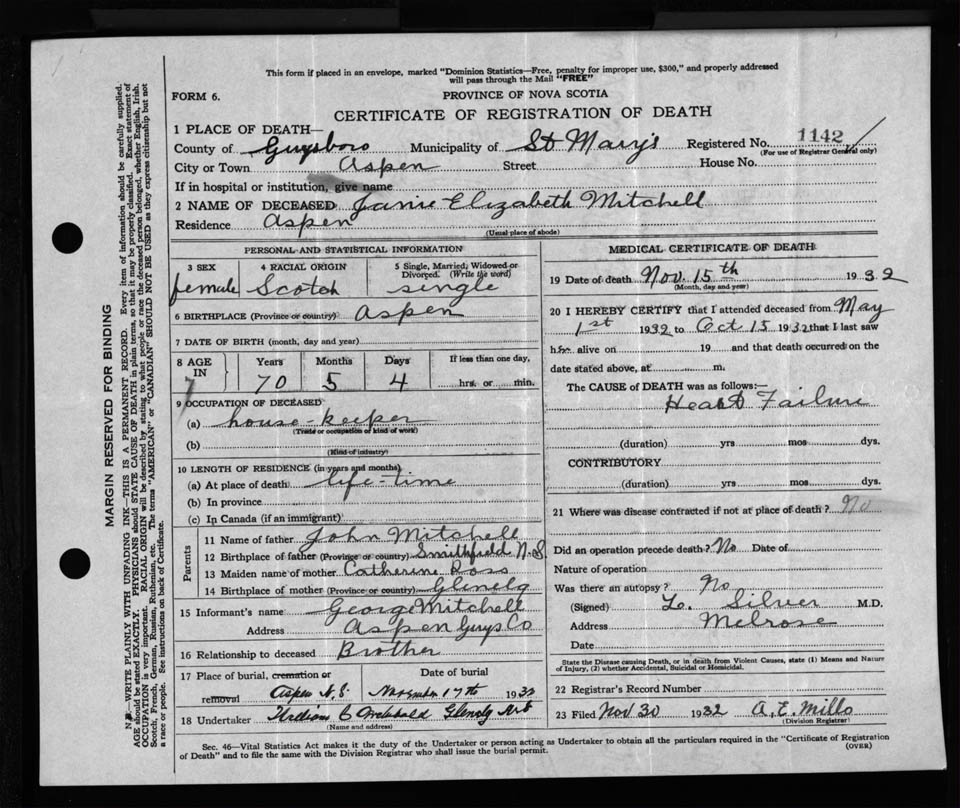 This form if placed in an envelope, marked "Dominion Statistics—Free, penalty for improper use, $300," and properly addressed
will pass through the Mail "FREE"
FORM 6.
PROVINCE OF NOVA SCOTIA
CERTIFICATE OF REGISTRATION OF DEATH
1 PLACE OF DEATH—
County of Guysboro Municipality of St Mary's Registered No. 1142
(For use of Registrar General only)
City or Town Aspen Street House No.
If in hospital or institution, give name
2 NAME OF DECEASED Janie Elizabeth Mitchell
Residence Aspen
(Usual place of abode)
PERSONAL AND STATISTICAL INFORMATION
3 SEX 4 RACIAL ORIGIN 5 Single, Married, Widowed or Divorced. (Write the word)
female Scotch single
6 BIRTHPLACE (Province or country) Aspen
7 DATE OF BIRTH (month, day and year)
8 AGE IN Years Months Days If less than one day,
70 5 4 hrs. or min.
9 OCCUPATION OF DECEASED
(a) house keeper
(Trade or occupation or kind of work)
(b)
(Kind of industry)
10 LENGTH OF RESIDENCE (in years and months)
(a) At place of death life-time
(b) In province
(c) In Canada (if an immigrant)
Parents
11 Name of father John Mitchell
12 Birthplace of father (Province or country) Smithfield N.S
13 Maiden name of mother Catherine Ross
14 Birthplace of mother (Province or country) Glenelg
15 Informant's name George Mitchell
Address Aspen Guys Co
16 Relationship to deceased Brother
17 Place of burial, cremation or removal Date of burial
Aspen N.S. November 17th 1932
18 Undertaker William C Archibald Glenelg N.S
(Name and address)
MEDICAL CERTIFICATE OF DEATH
19 Date of death Nov. 15th 1932
(Month, day and year)
20 I HEREBY CERTIFY that I attended deceased from May
1st 1932 to Oct 15 1932 that I last saw
her alive on 19 and that death occurred on the
date stated above, at m.
The CAUSE OF DEATH was as follows:—
Heart Failure
(duration) yrs mos dys.
CONTRIBUTORY
(duration) yrs mos dys.
21 Where was disease contracted if not at place of death? No
Did an operation precede death? No Date of
Nature of operation
Was there an autopsy? No
(Signed) L. Silver M.D.
Address Melrose
Date
State the Disease causing Death, or in death from Violent Causes, state (1) Means and Nature
of Injury, (2) whether Accidental, Suicidal or Homicidal.
22 Registrar's Record Number
23 Filed Nov 30 1932 A. E. Mills
(Division Registrar)
Sec. 46—Vital Statistics Act makes it the duty of the Undertaker or person acting as Undertaker to obtain all the particulars required in the "Certificate of Registration
of Death" and to file the same with the Division Registrar who shall issue the burial permit.
(OVER)
MARGIN RESERVED FOR BINDING
N.B.—WRITE PLAINLY WITH UNFADING INK—THIS IS A PERMANENT RECORD. Every item of information should be carefully supplied.
AGE should be stated EXACTLY. PHYSICIANS should STATE CAUSE OF DEATH in plain terms, so that it may be properly classified. Exact statement of
OCCUPATION is very important. RACIAL ORIGIN will be described by stating to what people or race the deceased person belonged, whether English, Irish,
Scotch, French, German, Russian, Ruthenian, etc. The terms "AMERICAN" or "CANADIAN" SHOULD NOT BE USED as they express citizenship but not
a race or people. See instructions on back of Certificate.